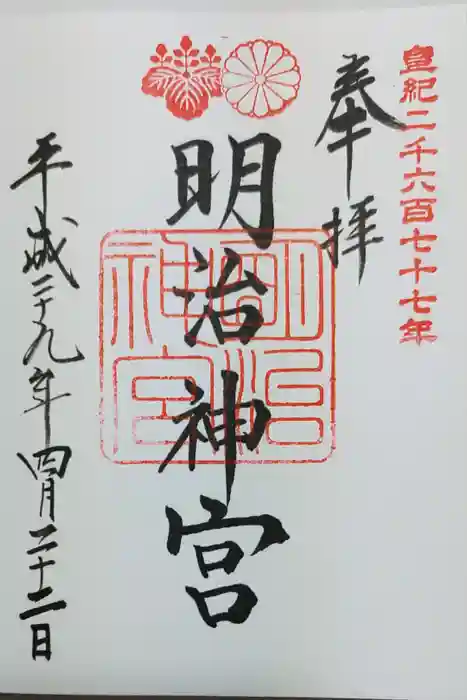 皇紀二千六百七十七年
奉拝
明治神宮
明治神宮
平成二十九年四月二十二日